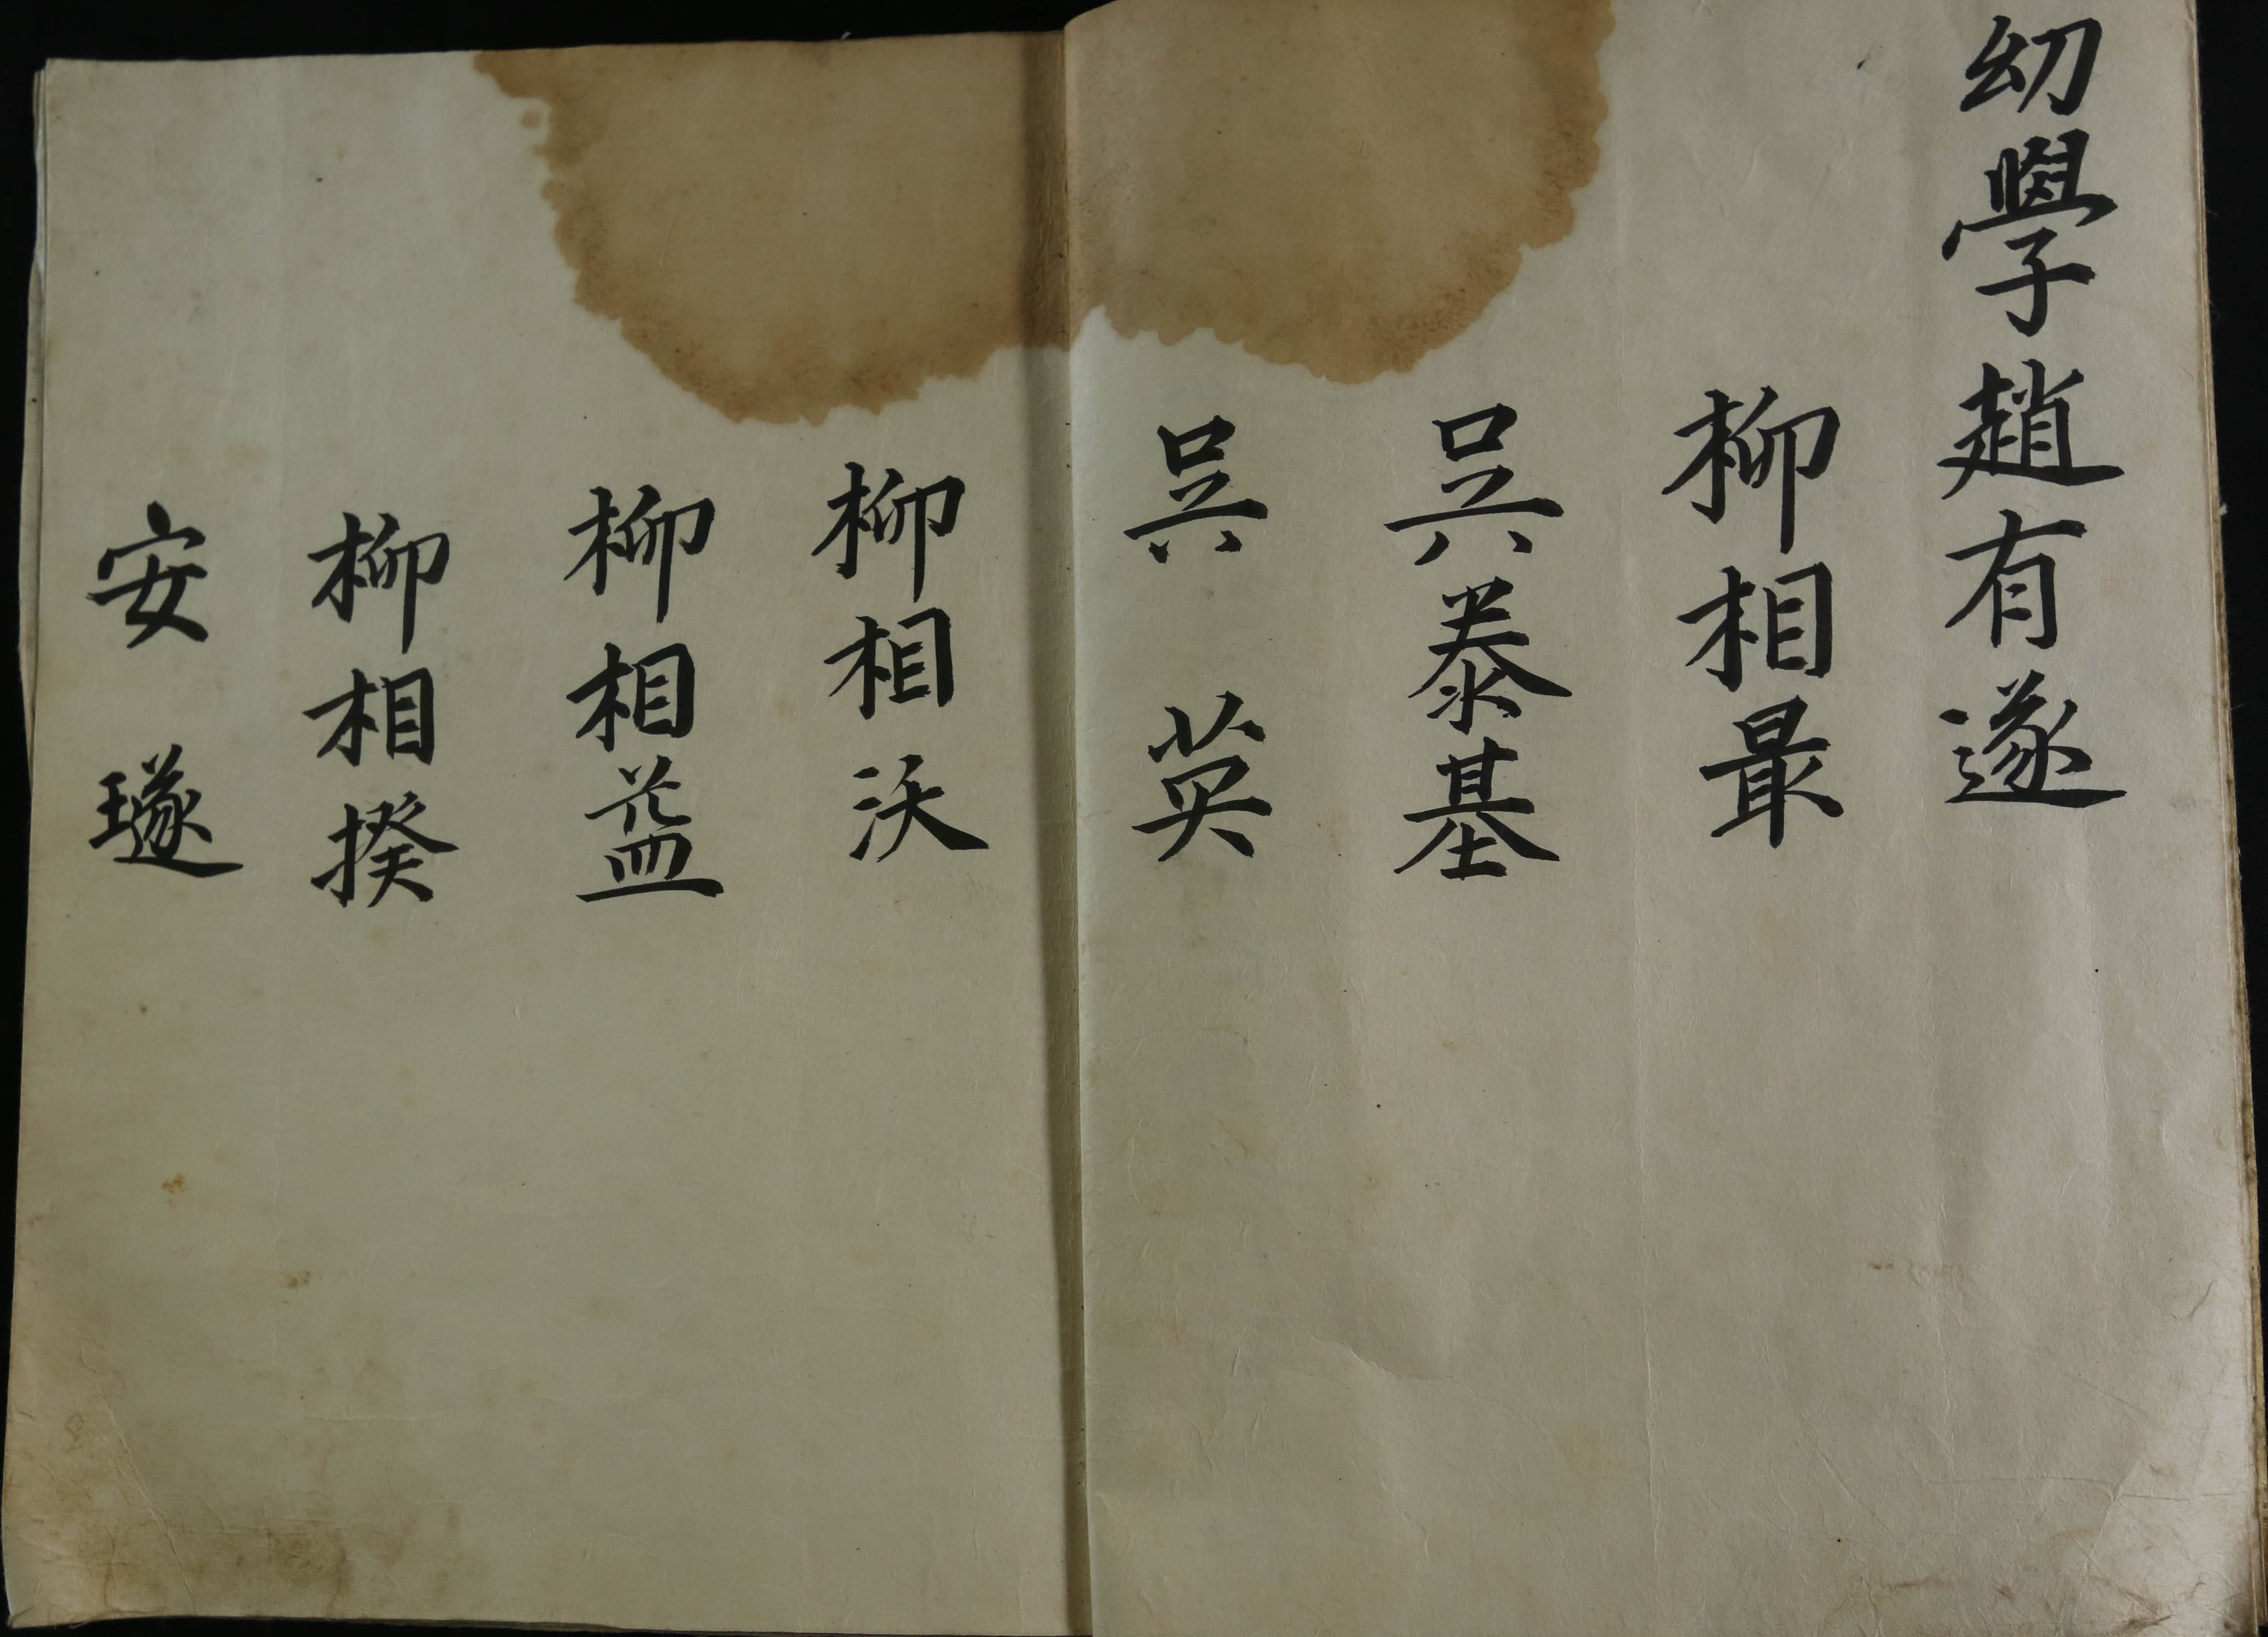 幼學趙有遂
柳相最
吳泰基
吳英
柳相沃
柳相益
柳相揆
安璲